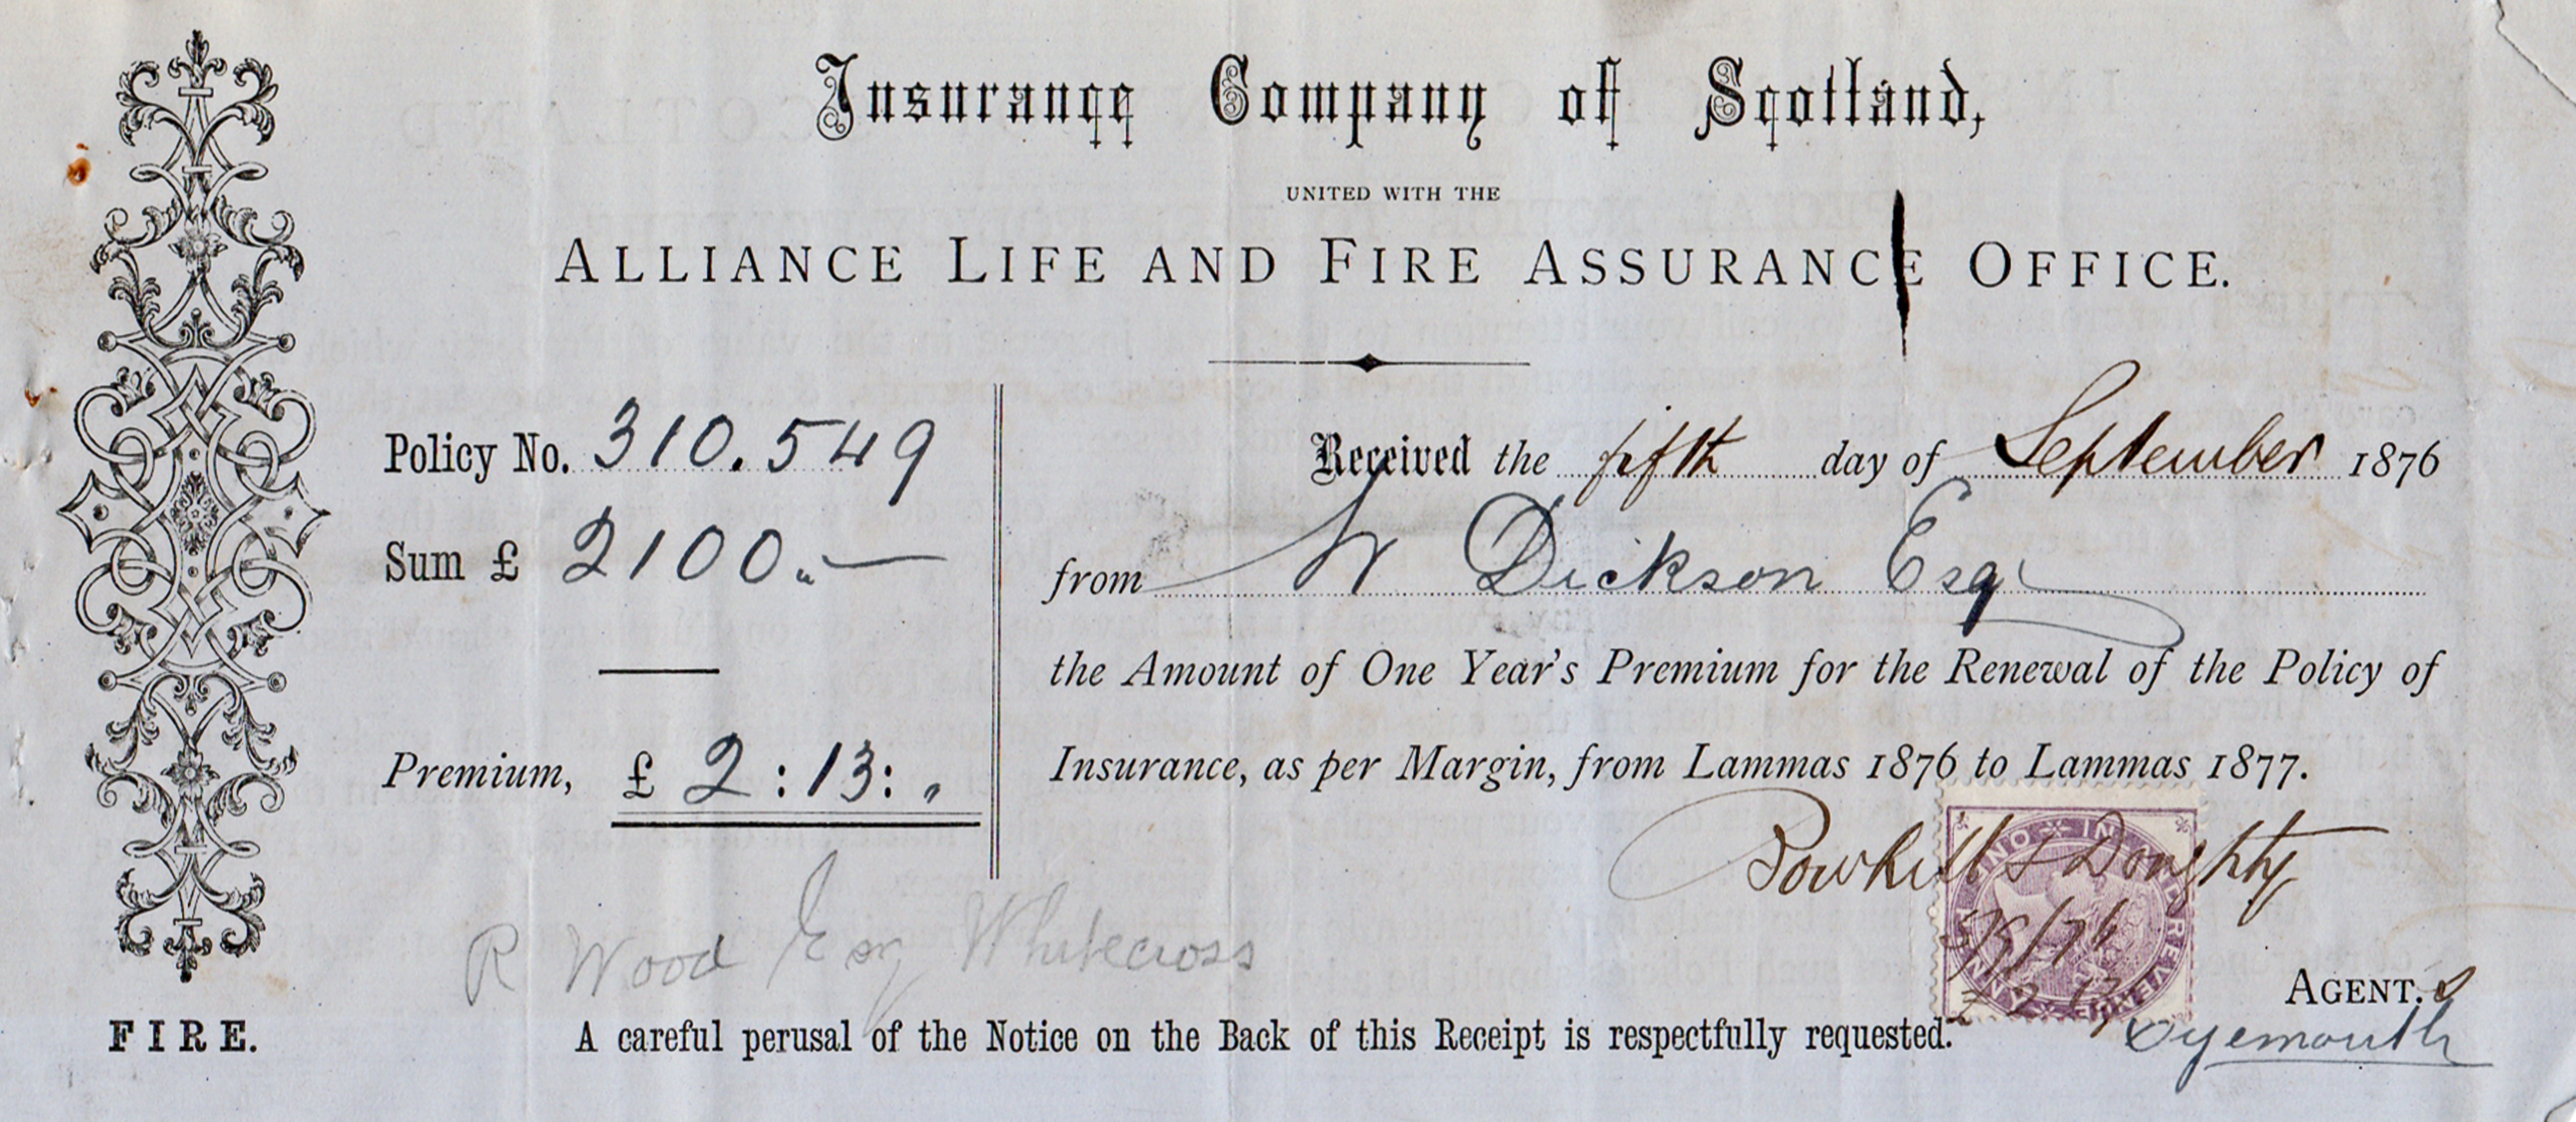 Insurance Company of Scotland,
UNITED WITH THE
ALLIANCE LIFE AND FIRE ASSURANCE OFFICE.
Policy No. 310.549
Sum £ 2100.„—
Premium, £ 2 : 13 : „
Received the fifth day of September 1876
from W Dickson Esq
the Amount of One Year's Premium for the Renewal of the Policy of
Insurance, as per Margin, from Lammas 1876 to Lammas 1877.
& Doughty
5/9/76
INLAND REVENUE
AGENT.s
Eyemouth
R Wood Esq Whitecross
FIRE.
A careful perusal of the Notice on the Back of this Receipt is respectfully requested.